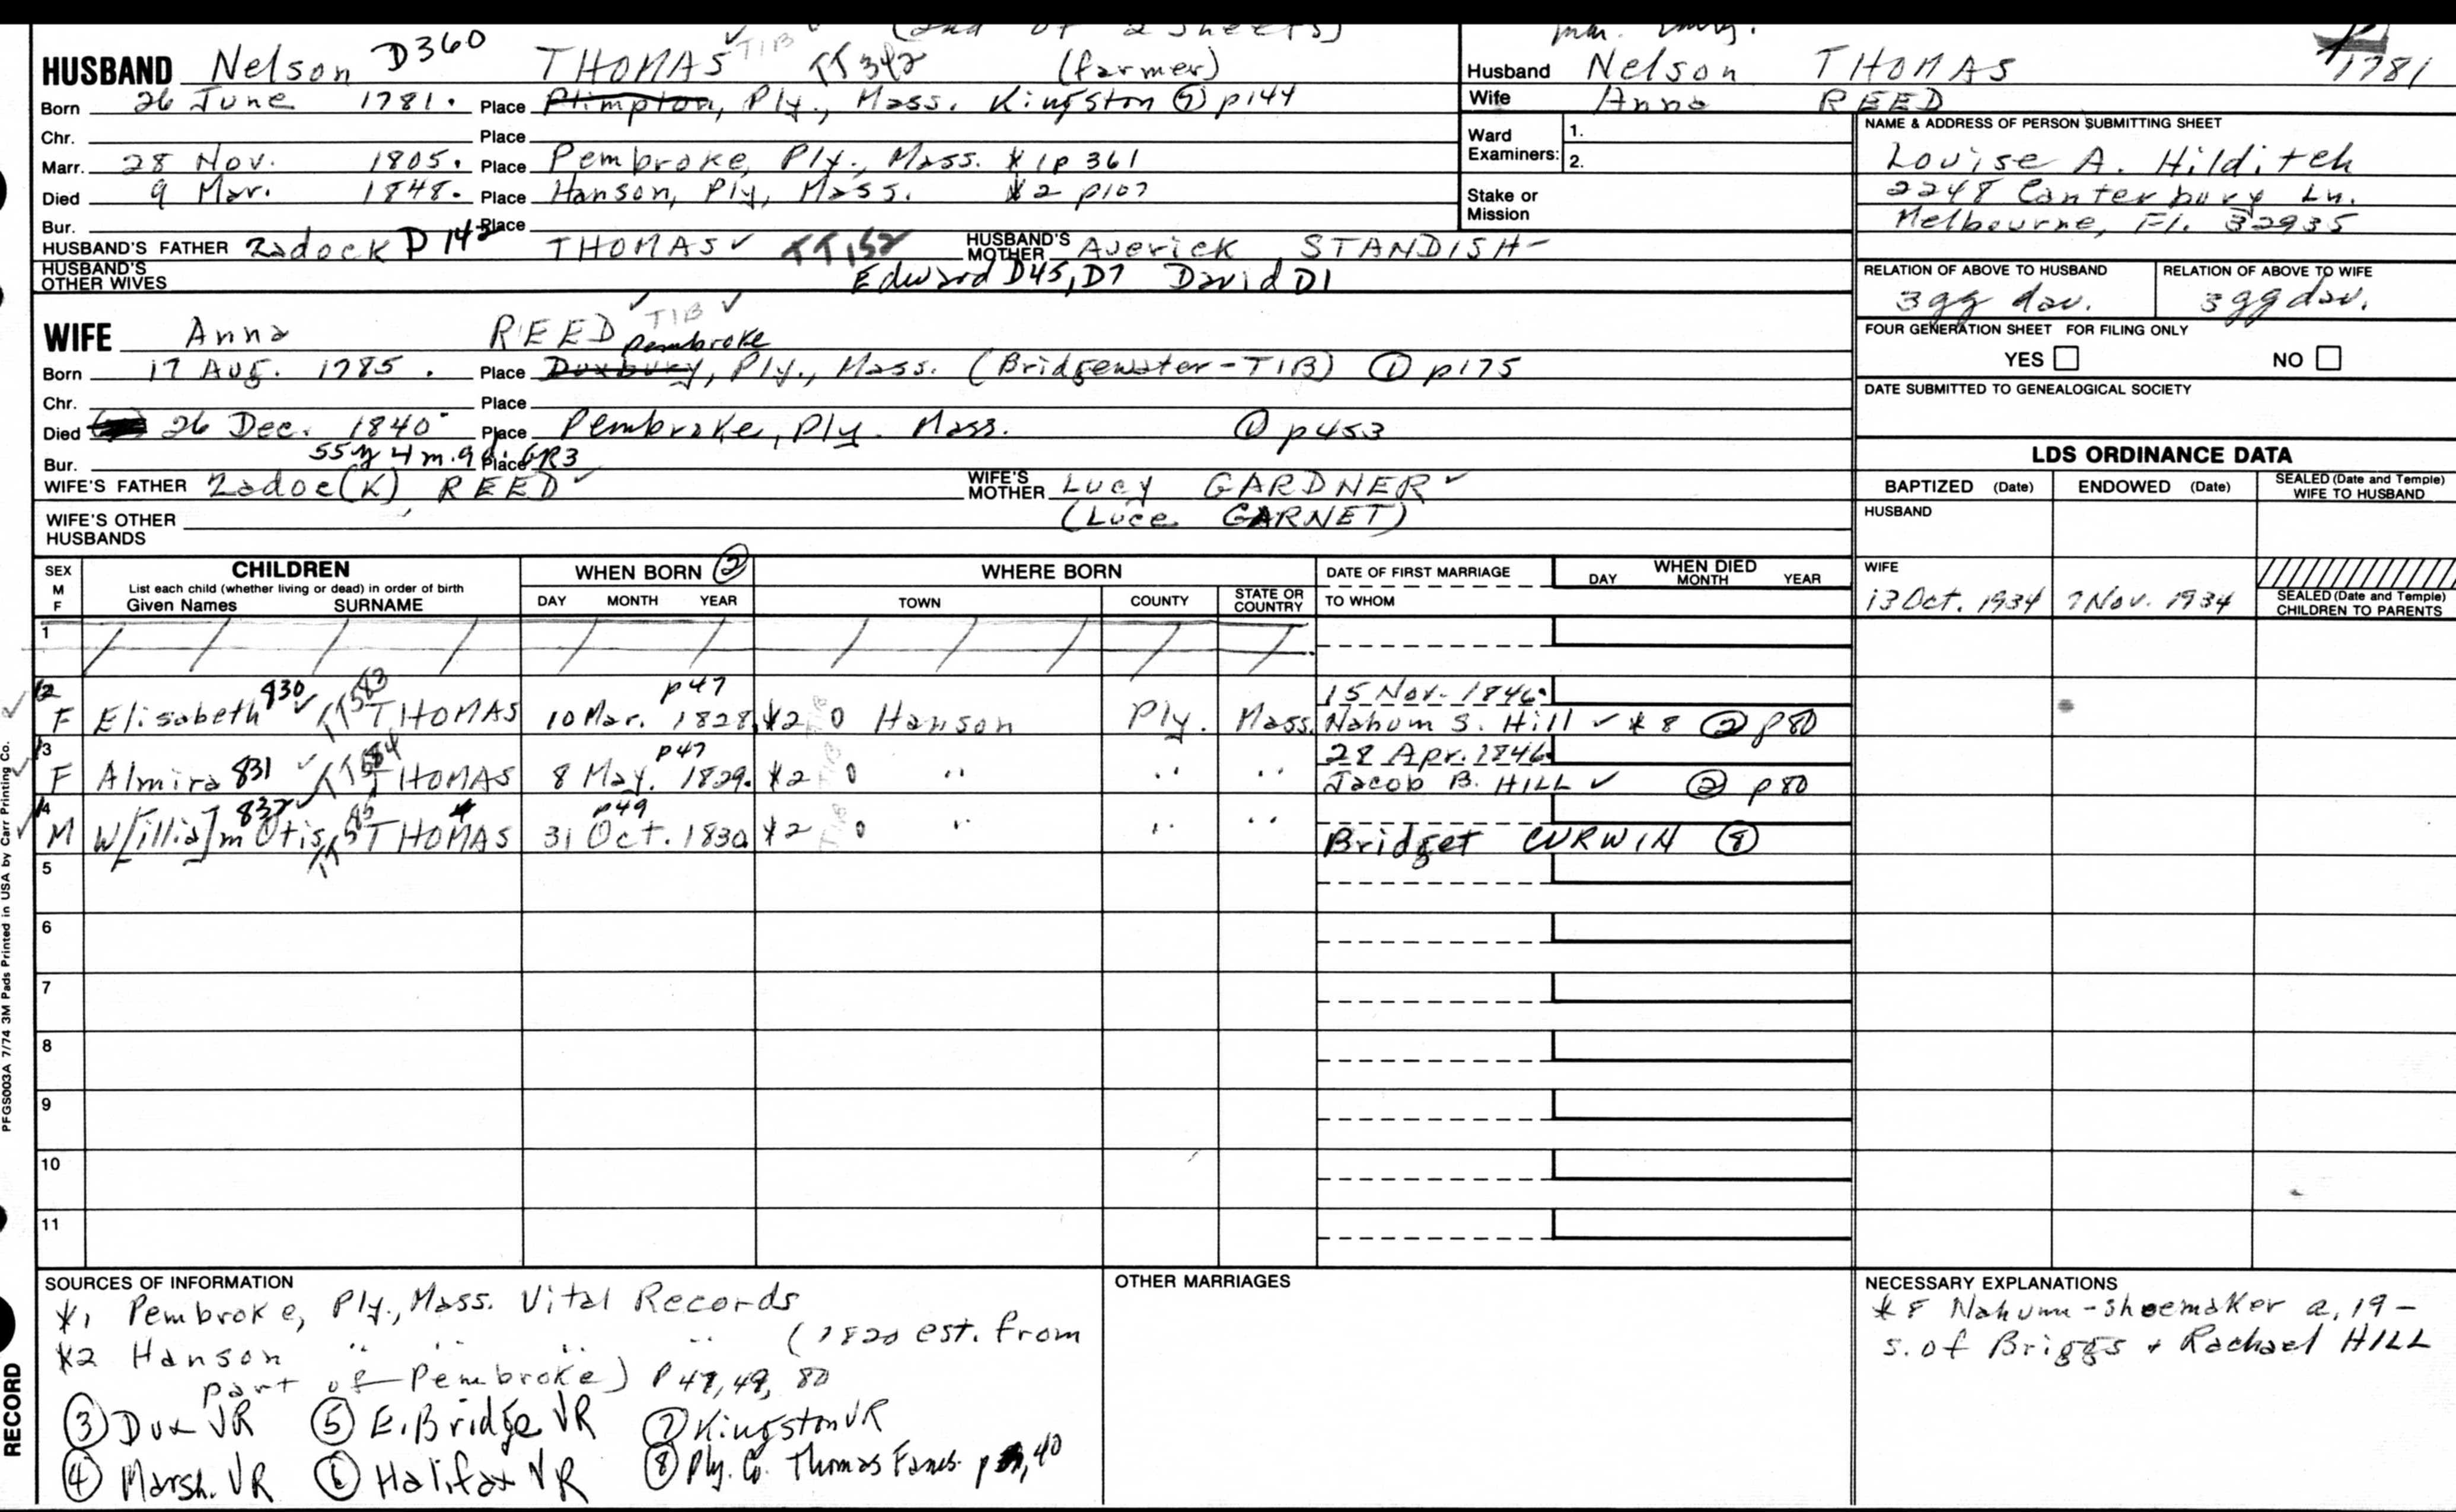 (2nd of 2 sheets)
HUSBAND Nelson D360 THOMAS ✓ TIB TT342 (farmer)
Born 26 June 1781. Place Plimpton, Ply., Mass. Kingston ⑦ p144
Chr. Place
Marr. 28 Nov. 1805. Place Pembroke, Ply., Mass. *1 p 361
Died 9 Mar. 1848. Place Hanson, Ply, Mass. *2 p107
Bur. Place
HUSBAND'S FATHER Zadock D142 THOMAS ✓ TT152 HUSBAND'S MOTHER Averick STANDISH
HUSBAND'S OTHER WIVES Edward D45, D7 David D1
WIFE Anna REED TIB ✓
Pembroke
Born 17 Aug. 1785. Place Duxbury, Ply., Mass. (Bridgewater-TIB) ① p175
Chr. Place
Died 26 Dec. 1840 Place Pembroke, Ply. Mass. ① p453
Bur. 55y 4m. 9d. Place GR3
WIFE'S FATHER Zadoc(K) REED ✓ WIFE'S MOTHER Lucy GARDNER ✓
(Luce GARNET)
WIFE'S OTHER HUSBANDS
1781
Husband Nelson THOMAS
Wife Anna REED
Ward Examiners: 1.
2.
Stake or Mission
NAME & ADDRESS OF PERSON SUBMITTING SHEET
Louise A. Hilditch
2248 Canterbury Ln.
Melbourne, Fl. 32935
RELATION OF ABOVE TO HUSBAND RELATION OF ABOVE TO WIFE
3gg dau. 3gg dau.
FOUR GENERATION SHEET FOR FILING ONLY
YES NO
DATE SUBMITTED TO GENEALOGICAL SOCIETY
LDS ORDINANCE DATA
BAPTIZED (Date) ENDOWED (Date) SEALED (Date and Temple) WIFE TO HUSBAND
HUSBAND
WIFE
13 Oct. 1934 7 Nov. 1934
SEALED (Date and Temple) CHILDREN TO PARENTS
SEX M F CHILDREN WHEN BORN ② WHERE BORN DATE OF FIRST MARRIAGE WHEN DIED
List each child (whether living or dead) in order of birth
Given Names SURNAME DAY MONTH YEAR TOWN COUNTY STATE OR COUNTRY TO WHOM DAY MONTH YEAR
1
2 830 TT583 p47 15 Nov. 1846.
F Elisabeth ✓ THOMAS 10 Mar. 1828 *2 0 Hanson Ply. Mass. Nahum S. Hill ✓ *8 ② p80
3 831 TT584 p47 28 Apr. 1846.
F Almira ✓ THOMAS 8 May. 1829. *2 0 " " " Jacob B. HILL ✓ ② p80
4 832 TT585 p49
M W[illia]m Otis THOMAS 31 Oct. 1830 *2 0 " " " Bridget CURWIN ⑧
5
6
7
8
9
10
11
SOURCES OF INFORMATION
*1 Pembroke, Ply., Mass. Vital Records
*2 Hanson " " " " (1820 est. from
part of Pembroke) p 47, 49, 80
③ Dux VR ⑤ E. Bridge VR ⑦ Kingston VR
④ Marsh. VR ⑥ Halifax VR ⑧ Ply. Co. Thomas Fams. p 40
OTHER MARRIAGES
NECESSARY EXPLANATIONS
*8 Nahum - shoemaker a, 19 -
s. of Briggs + Rachael HILL
PFGS003A 7/74 3M Pads Printed in USA by Carr Printing Co.
RECORD